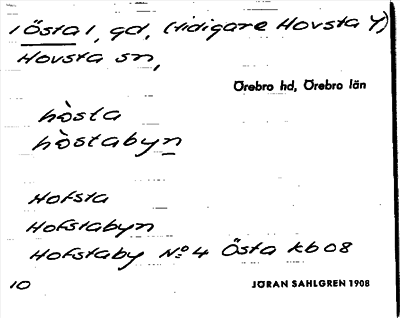 1 Östa 1, gd, (tidigare Hovsta Y)
Hovsta sn,
Örebro hd, Örebro län
hòsta
hòstabyn
Hofsta
Hofstabyn
Hofstaby No 4 Östa kb 08
10
JÖRAN SAHLGREN 1908